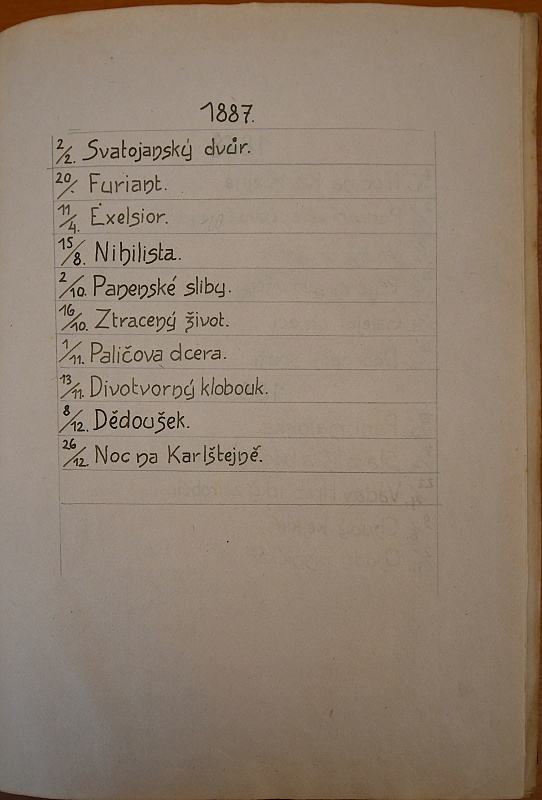 1887.
2/2. Svatojanský dvůr.
20/. Furiant.
11/4. Exelsior.
15/8. Nihilista.
2/10. Panenské sliby.
16/10. Ztracený život.
1/11. Paličova dcera.
13/11. Divotvorný klobouk.
8/12. Dědoušek.
26/12. Noc na Karlštejně.